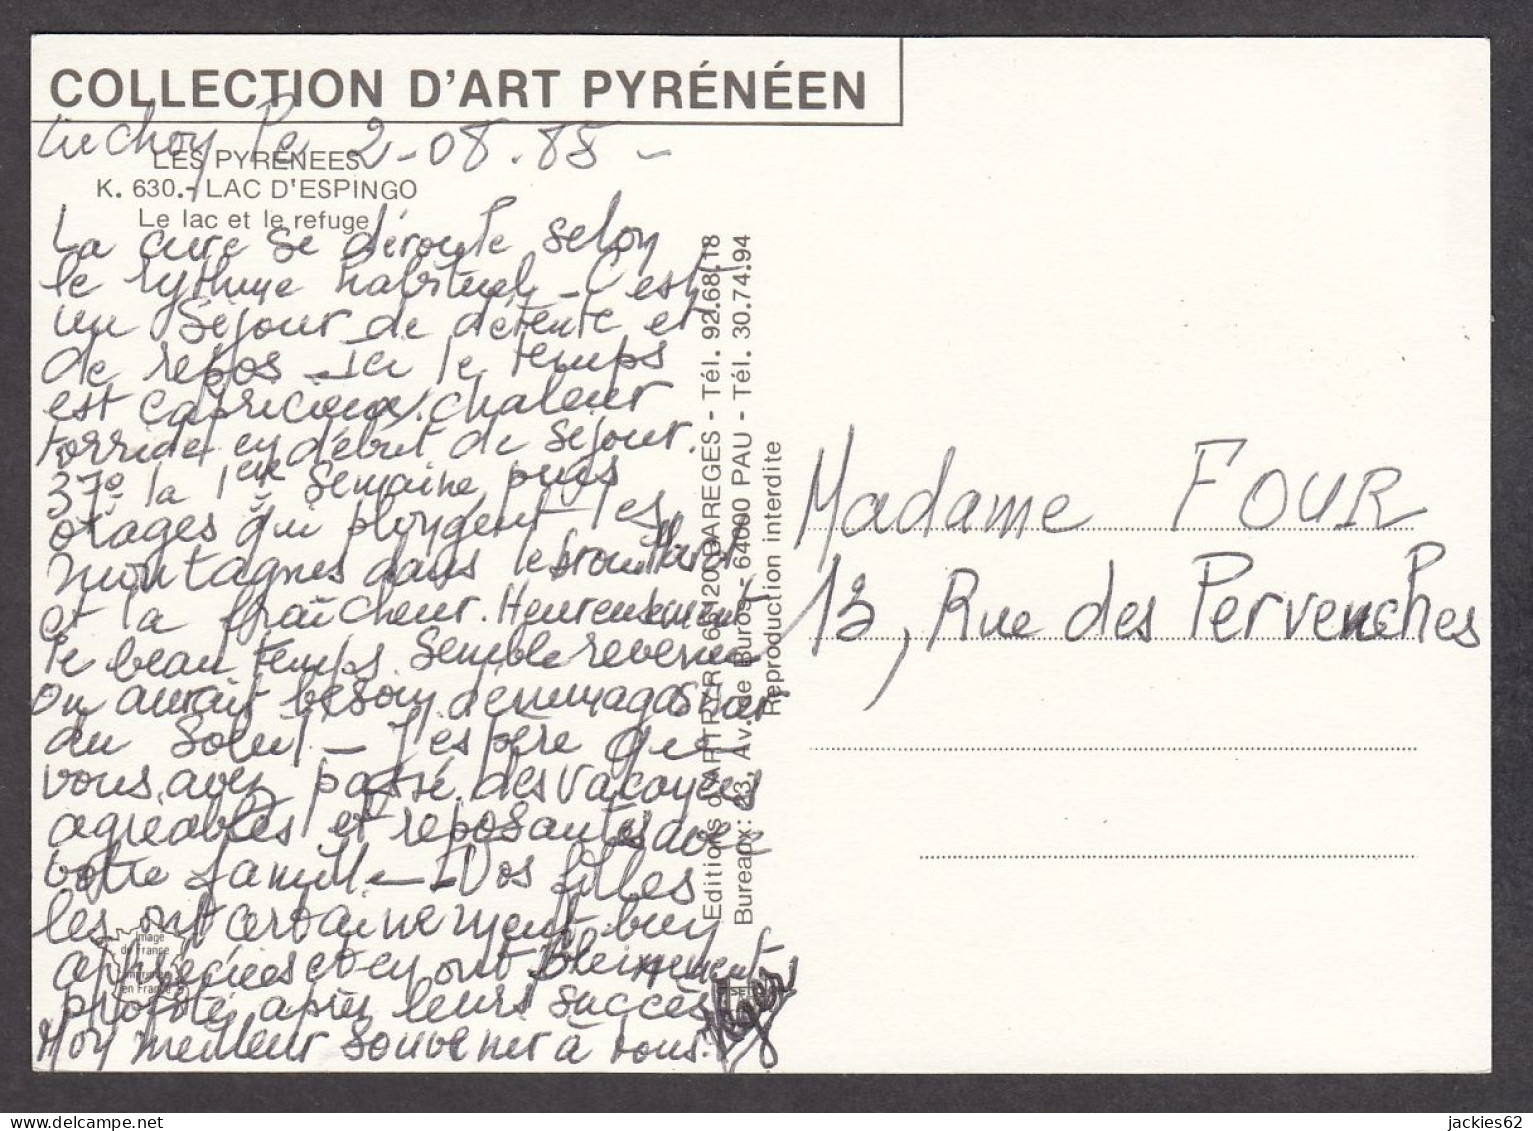 COLLECTION D'ART PYRÉNÉEN
Luchon le 2-08.85-
LES PYRENEES
K. 630.- LAC D'ESPINGO
Le lac et le refuge
La cure se déroule selon
le rythme habituel - C'est
un séjour de détente et
de repos - Ici le temps
est capricieux. chaleur
torride en début de séjour.
37° la 1ère semaine, puis
orages qui plongent les
montagnes dans le brouillard
et la fraîcheur. Heureusement
le beau temps semble revenu
on aurait besoin d'emmagasiner
du soleil - J'espère que
vous avez passé des vacances
agréables et reposantes avec
votre famille - Vos filles
les ont certainement bien
appréciées et en ont pleinement
profité, après leurs succès.
Mon meilleur souvenir à vous.
Image de France
Imprimé en France
Editions d'ART PYR 65120 BAREGES - Tél. 92.68.18
Bureaux: 23, Av. de Buros - 64000 PAU - Tél. 30.74.94
Reproduction interdite
Madame FOUR
13, Rue des Pervenches
jackies62